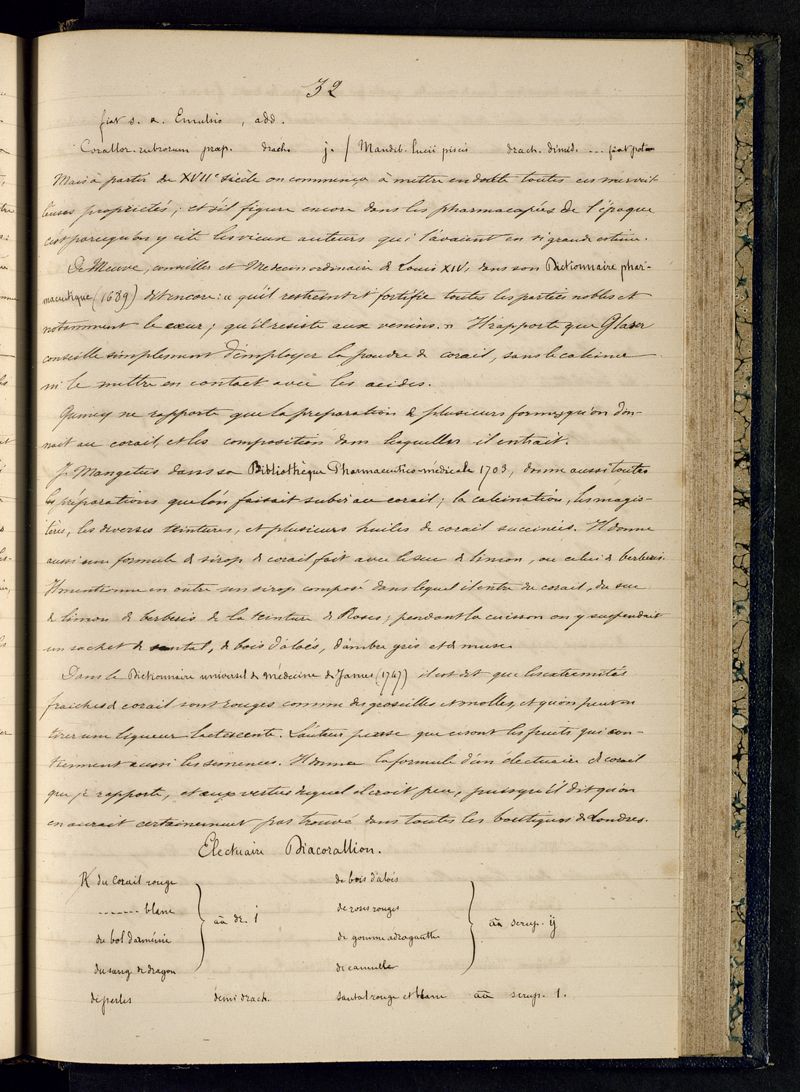 32
fiat s. a. Emulsio, add.
Corallor. rubrorum præp. drach. j. / Mandib. lucii piscis drach. dimid. --- fiat potio
Mais à partir du XVIIe siècle on commença à mettre en doute toutes ces merveil-
leuses propriétés ; et s'il figure encore dans les pharmacopées de l'époque
c'est parcequ'on y cite les vieux auteurs qui l'avaient en si grande estime.
De Meuve, conseiller et Médecin ordinaire de Louis XIV, dans son Dictionnaire phar-
maceutique (1689) dit encore : « qu'il restreint et fortifie toutes les parties nobles et
notamment le cœur ; qu'il resiste aux venins. » Il rapporte que Glaser
conseille simplement d'employer la poudre de corail, sans le calciner
ni le mettre en contact avec les acides.
ne rapporte que la preparation de plusieurs formes qu'on don-
nait au corail, et les composition dans lesquelles il entrait.
J. Mangetus dans sa Bibliothèque Pharmaceutico-médicale 1703, donne aussi toutes
les préparations que l'on faisait subir au corail ; la calcination, les magis-
tères, les diverses teintures, et plusieurs huiles de corail succinées. Il donne
aussi une formule de sirop de corail fait avec le suc de limon, ou celui de berberis.
Il mentionne en outre son sirop composé dans lequel il entre du corail, du suc
de limon de berberis de la teinture de Roses ; pendant la cuisson on y suspendait
un sachet de santal, de bois d'aloës, d'ambre gris et de musc.
Dans le Dictionnaire universel de médecine de James (1747) il est dit que les extremités
fraiches de corail sont rouges comme des groseilles et molles, et qu'on peut en
tirer une liqueur lactescente. L'auteur pense que ce sont les fruits qui con-
tiennent aussi les semences. Il donne la formule d'un électuaire de corail
que je rapporte, et aux vertus duquel il croit peu, puisqu'il dit qu'on
en aurait certainement pas trouvé dans toutes les boutiques de Londres.
Electuaire Diacorallion.
℞ du Corail rouge de bois d'aloës
------- blanc de roses rouges
āā dr. j āā scrup. ij
du bol d'arménie de gomme adragante
du sang de dragon de cannelle
de perles demi drach. santal rouge et blanc āā scrup. 1.